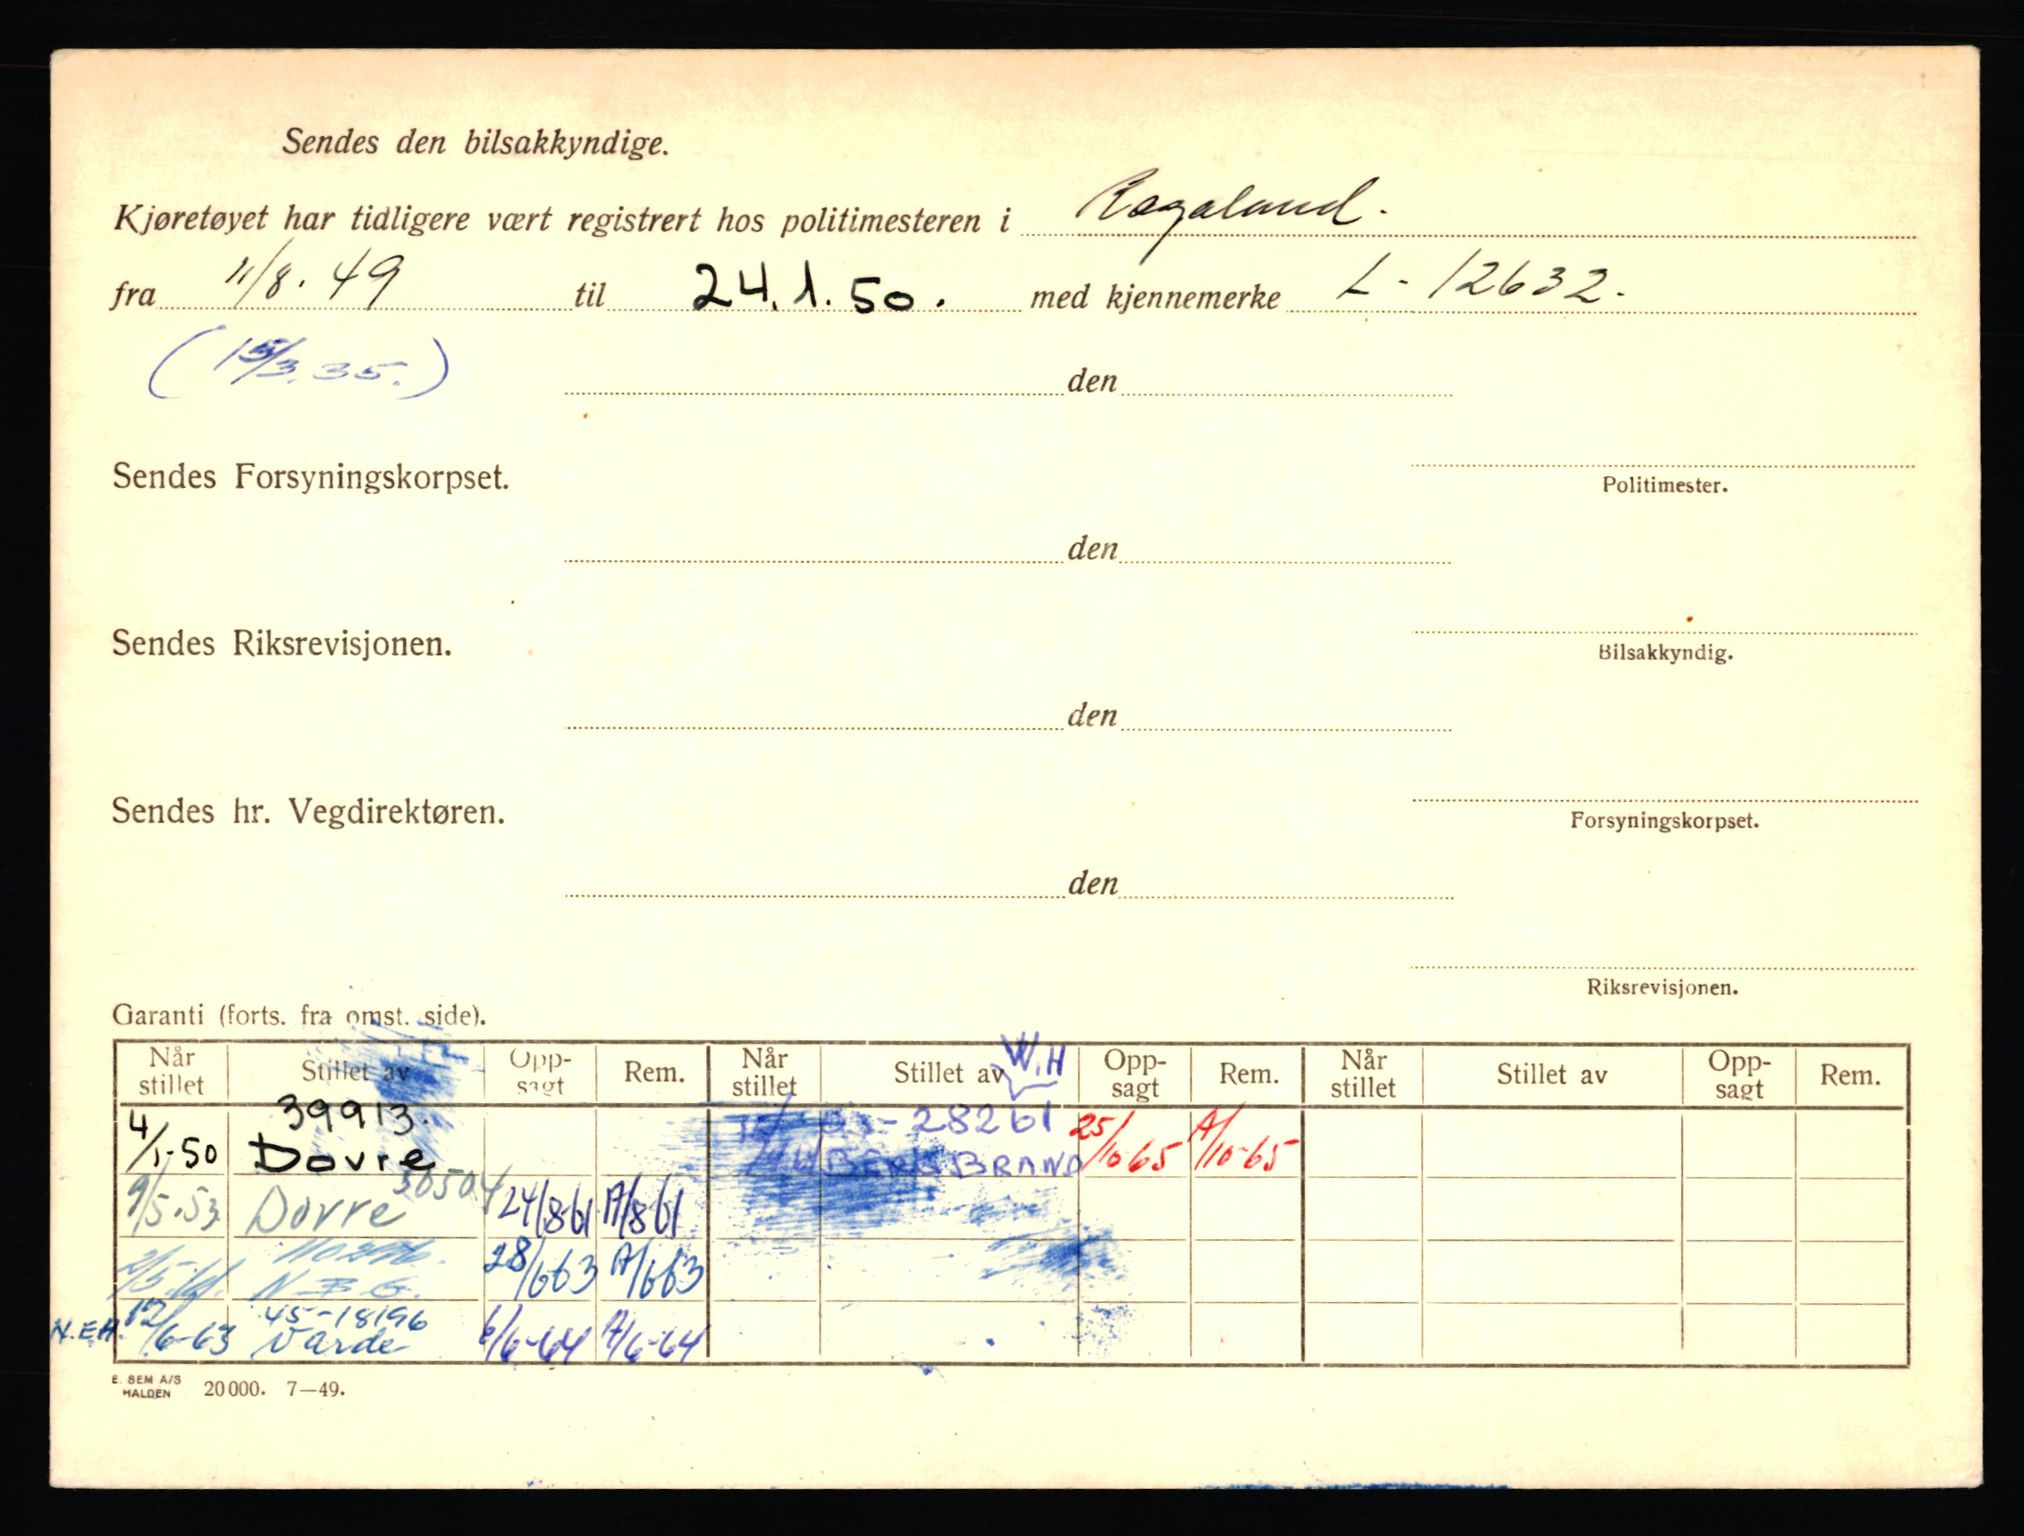 Sendes den bilsakkyndige.
Kjøretøyet har tidligere vært registrert hos politimesteren i Rogaland.
fra 11/8. 49 til 24.1.50. med kjennemerke L - 12632.
(15/3.35.)
den
Sendes Forsyningskorpset.
Politimester.
den
Sendes Riksrevisjonen.
Bilsakkyndig.
den
Sendes hr. Vegdirektøren.
Forsyningskorpset.
den
Riksrevisjonen.
Garanti (forts. fra omst. side).
W.H
Når stillet Stillet av Opp-sagt Rem. Når stillet Stillet av Opp-sagt Rem. Når stillet Stillet av Opp-sagt Rem.
4/1-50 39913. Dovre
28261 BERG BRAND 25/10-65 A/10-65
9/5.53 Dovre 50504 24/8-61 A/8-61
N.B.G. 28/6-63 A/6-63
N.E.H. 12/6-63 45-18196 Varde 6/6-64 A/6-64
E. SEM A/S
HALDEN 20000. 7—49.